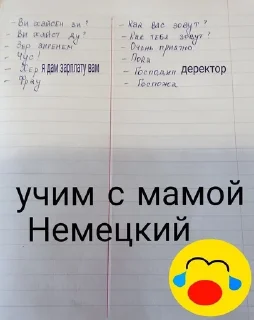 - Ви хайсен зи?
- Ви хайст ду?
- Зэр ангенем
- Чус!
- Хер я дам зарплату вам
- Фрау
- Как вас зовут?
- Как тебя зовут?
- Очень приятно
- Пока
- Господин директор
- Госпожа
учим с мамой
Немецкий